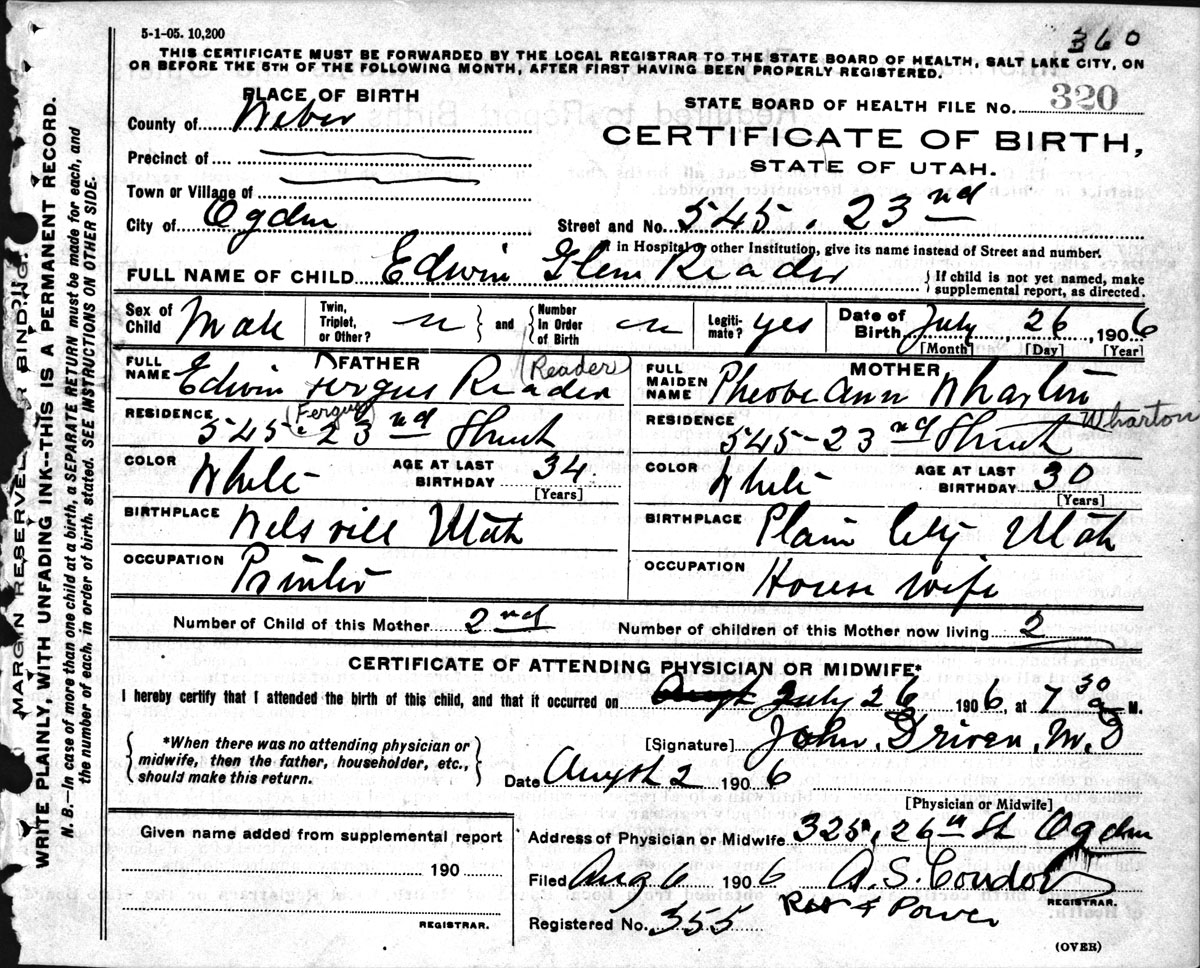 5-1-05. 10,200
360
THIS CERTIFICATE MUST BE FORWARDED BY THE LOCAL REGISTRAR TO THE STATE BOARD OF HEALTH, SALT LAKE CITY, ON
OR BEFORE THE 5TH OF THE FOLLOWING MONTH, AFTER FIRST HAVING BEEN PROPERLY REGISTERED.
PLACE OF BIRTH
STATE BOARD OF HEALTH FILE NO. 320
County of Weber
CERTIFICATE OF BIRTH,
STATE OF UTAH.
Precinct of
Town or Village of
City of Ogden
Street and No. 545. 23rd
If in Hospital or other Institution, give its name instead of Street and number.
FULL NAME OF CHILD Edwin Glem Reader
If child is not yet named, make
supplemental report, as directed.
Sex of Child Male
Twin, Triplet, or Other?
and
Number In Order of Birth
Legiti- mate? yes
Date of Birth July 26, 1906
[Month] [Day] [Year]
FATHER
FULL NAME Edwin Fergus Reader
(Reader)
(Fergus)
RESIDENCE 545-23rd Street
COLOR White
AGE AT LAST BIRTHDAY 34
[Years]
BIRTHPLACE Welsvill Utah
OCCUPATION Printer
MOTHER
FULL MAIDEN NAME Pheobe Ann Wharton
Wharton
RESIDENCE 545-23rd Street
COLOR White
AGE AT LAST BIRTHDAY 30
[Years]
BIRTHPLACE Plain City Utah
OCCUPATION House wife
Number of Child of this Mother 2nd
Number of children of this Mother now living 2
CERTIFICATE OF ATTENDING PHYSICIAN OR MIDWIFE*
I hereby certify that I attended the birth of this child, and that it occurred on July 26 1906, at 7 30 a M.
*When there was no attending physician or
midwife, then the father, householder, etc.,
should make this return.
[Signature] John Driven, M.D
Date August 2 1906
[Physician or Midwife]
Given name added from supplemental report
190
REGISTRAR.
Address of Physician or Midwife 325, 26th St Ogden
Filed Aug 6 1906 A.S. Condon
REGISTRAR.
Registered No. 355
Power
(OVER)
MARGIN RESERVED FOR BINDING.
WRITE PLAINLY, WITH UNFADING INK--THIS IS A PERMANENT RECORD.
N. B.—In case of more than one child at a birth, a SEPARATE RETURN must be made for each, and
the number of each, in order of birth, stated. SEE INSTRUCTIONS ON OTHER SIDE.